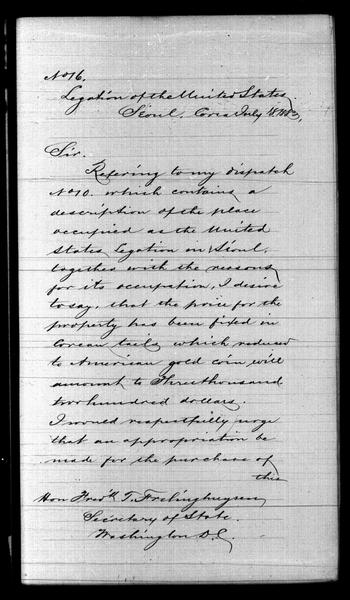 No 16.
Legation of the United States,
Séoul, Corea July 1883,
Sir.
Refering to my dispatch
No 10. which contains a
description of the place
occupied as the United
States Legation in Séoul,
together with the reasons
for its occupation, I desire
to say, that the price for the
property has been fixed in
Corean tails, which reduced
to American gold coin will
amount to Three thousand
two hundred dollars.
I would respectfully urge
that an appropriation be
made for the purchase of
this
Hon Fredk T. Frelinghuysen
Secretary of State.
Washington D.C.